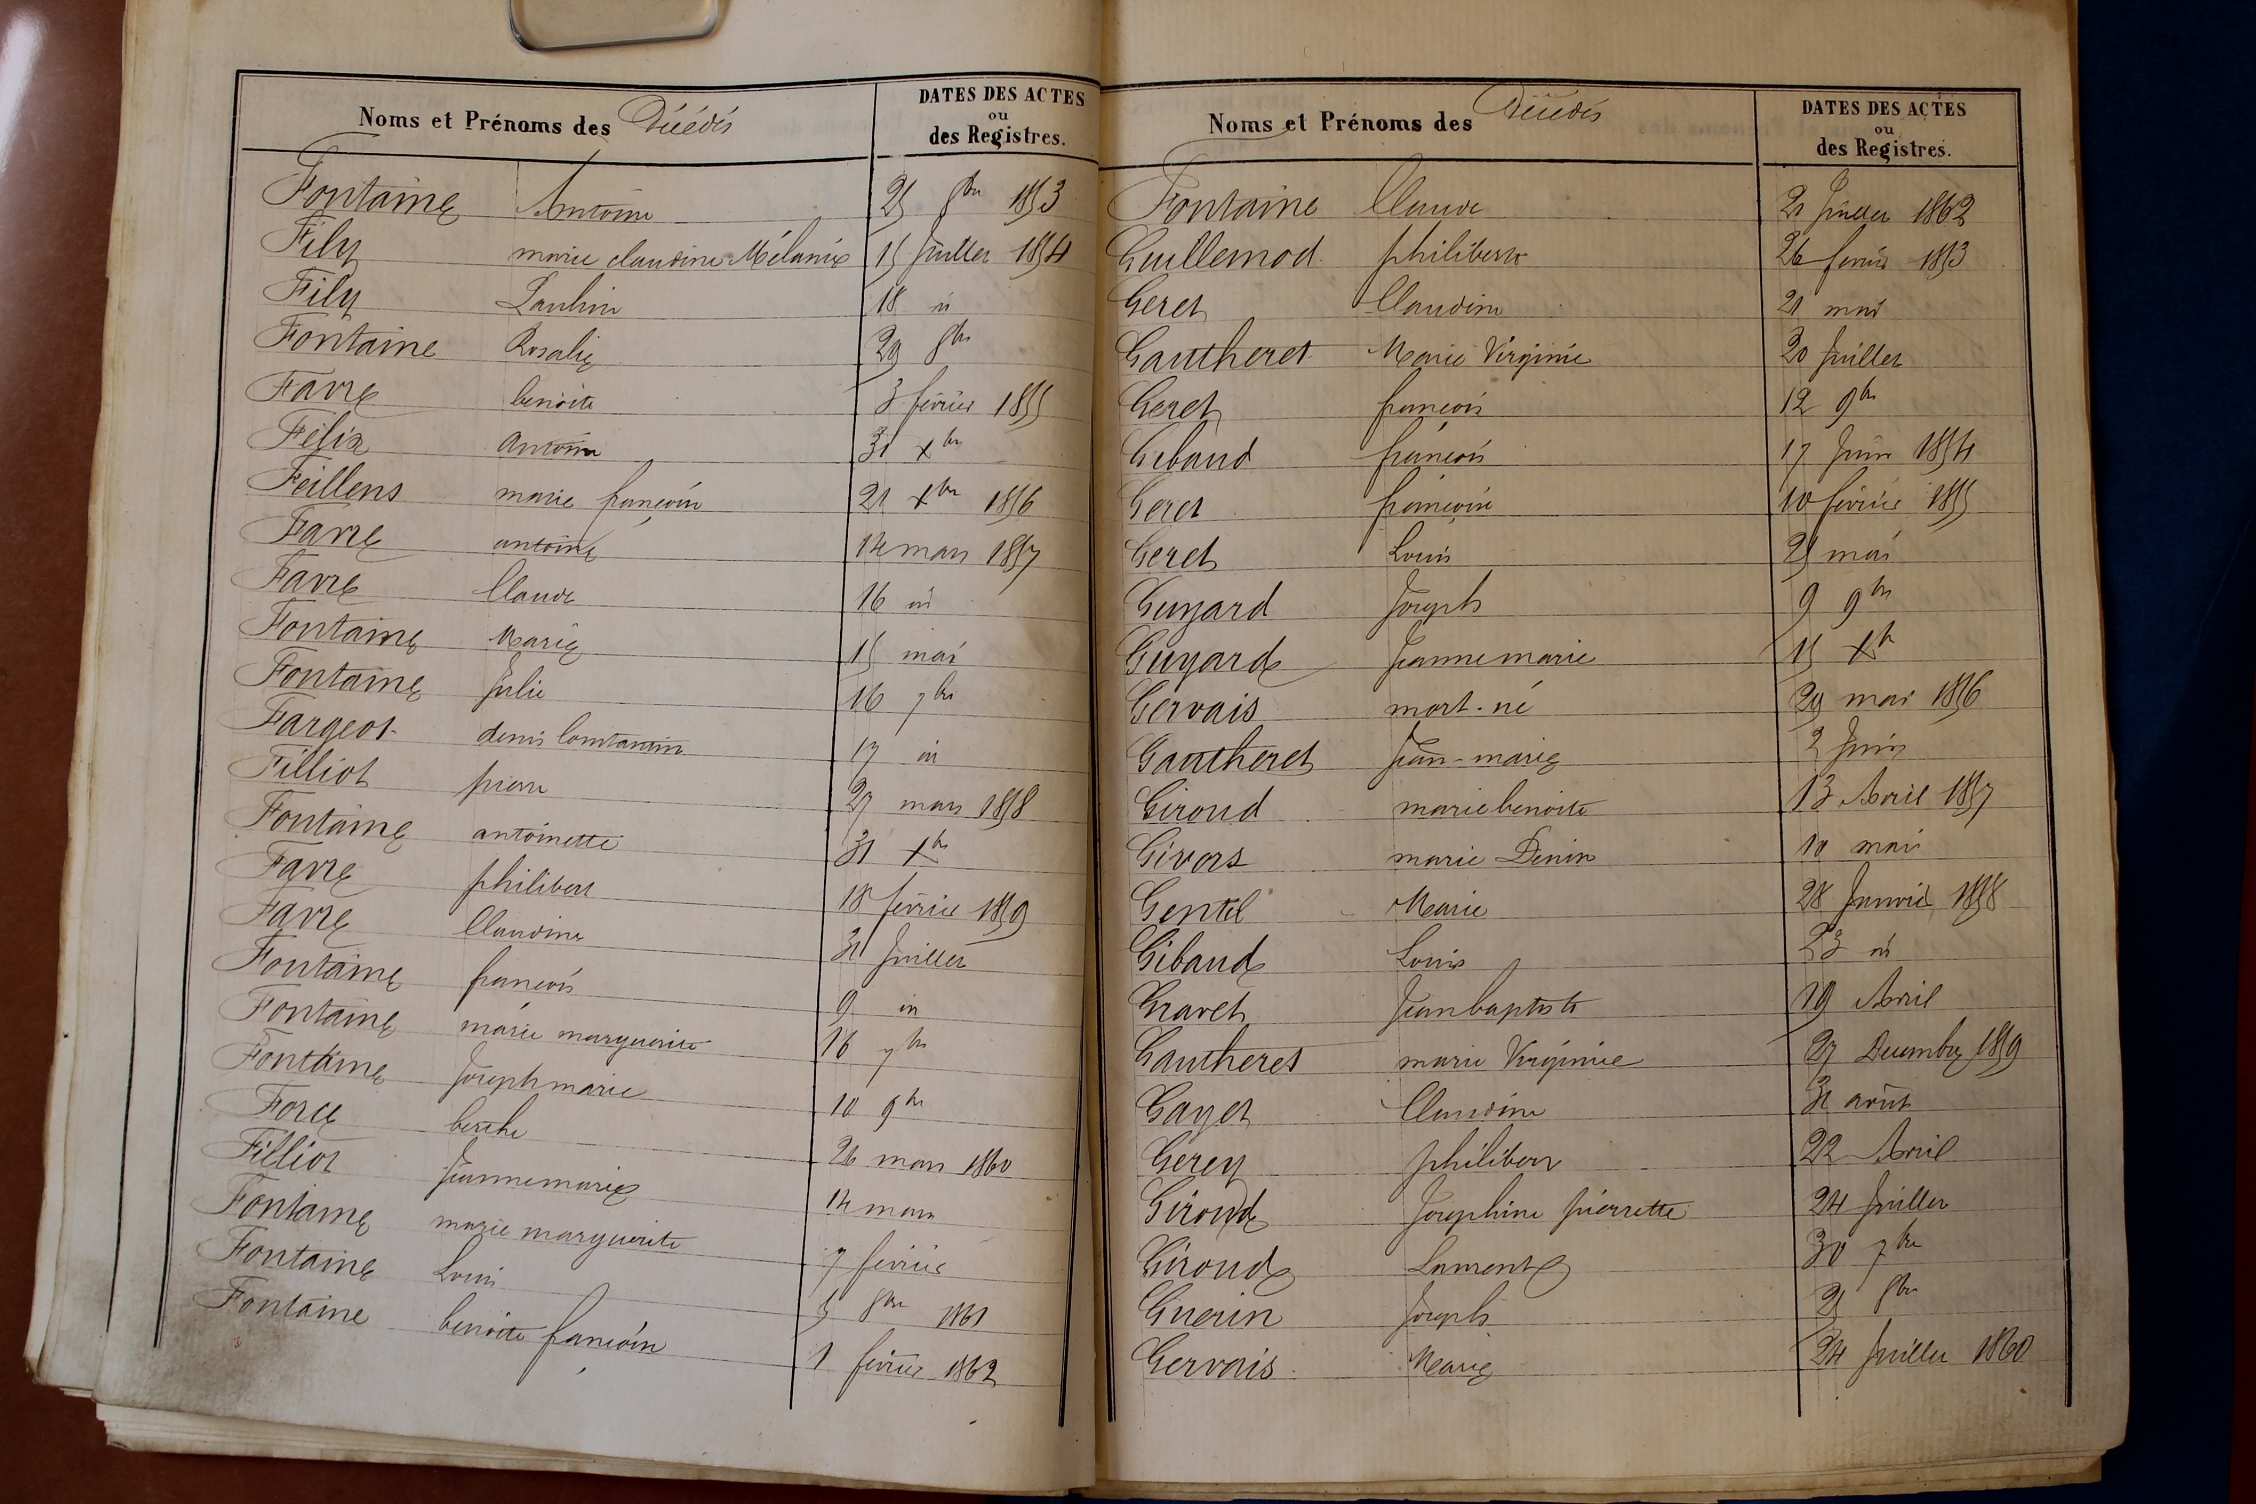 Noms et Prénoms des Décédés
DATES DES ACTES
ou
des Registres.
Fontaine Antoine 25 8bre 1853
Fily marie claudine Mélanie 15 Juillet 1854
Fily Paulin 18 id
Fontaine Rosalie 29 8bre
Favre benoite 3 février 1855
Félix antoine 31 Xbre
Feillens marie françoise 21 Xbre 1856
Favre antoine 14 mars 1857
Favre Claude 16 id
Fontaine Marie 15 mai
Fontaine Julie 16 7bre
Fargeot denis Constantin 17 id
Filliot pierre 27 mars 1858
Fontaine antoinette 31 Xbre
Favre philibert 18 février 1859
Favre Claudine 31 Juillet
Fontaine françois 9 id
Fontaine marie marguerite 16 7bre
Fontaine Joseph marie 10 9bre
Force berthe 26 mars 1860
Filliot Jeanne marie 14 mars
Fontaine marie marguerite 7 février
Fontaine Louis 5 8bre 1861
Fontaine benoite françoise 1 février 1862
Noms et Prénoms des Décédés
DATES DES ACTES
ou
des Registres.
Fontaine Claude 21 Juillet 1862
Guillemod philibert 26 février 1853
Geret Claudine 21 mai
Gautheret Marie Virginie 20 Juillet
Geret françois 12 9bre
Gebaud françois 17 Juin 1854
Geret françoise 10 février 1855
Geret Louis 25 mai
Guyard Joseph 9 9bre
Guyard Jeanne marie 15 Xbre
Gervais mort-né 29 mai 1856
Gautheret Jean-marie 2 Juin
Giroud marie benoite 13 Avril 1857
Givors marie Denise 10 mai
Gentil Marie 28 Janvier 1858
Gibaud Louis 23 id
Gravet Jean baptiste 19 Avril
Gautheret marie Virginie 27 Decembre 1859
Gayet Claudine 31 août
Gerey philibert 22 Avril
Giroud Josephine pierrette 24 Juillet
Giroud Laurent 30 7bre
Guerin Joseph 21 8bre
Gervais Marie 24 Juillet 1860